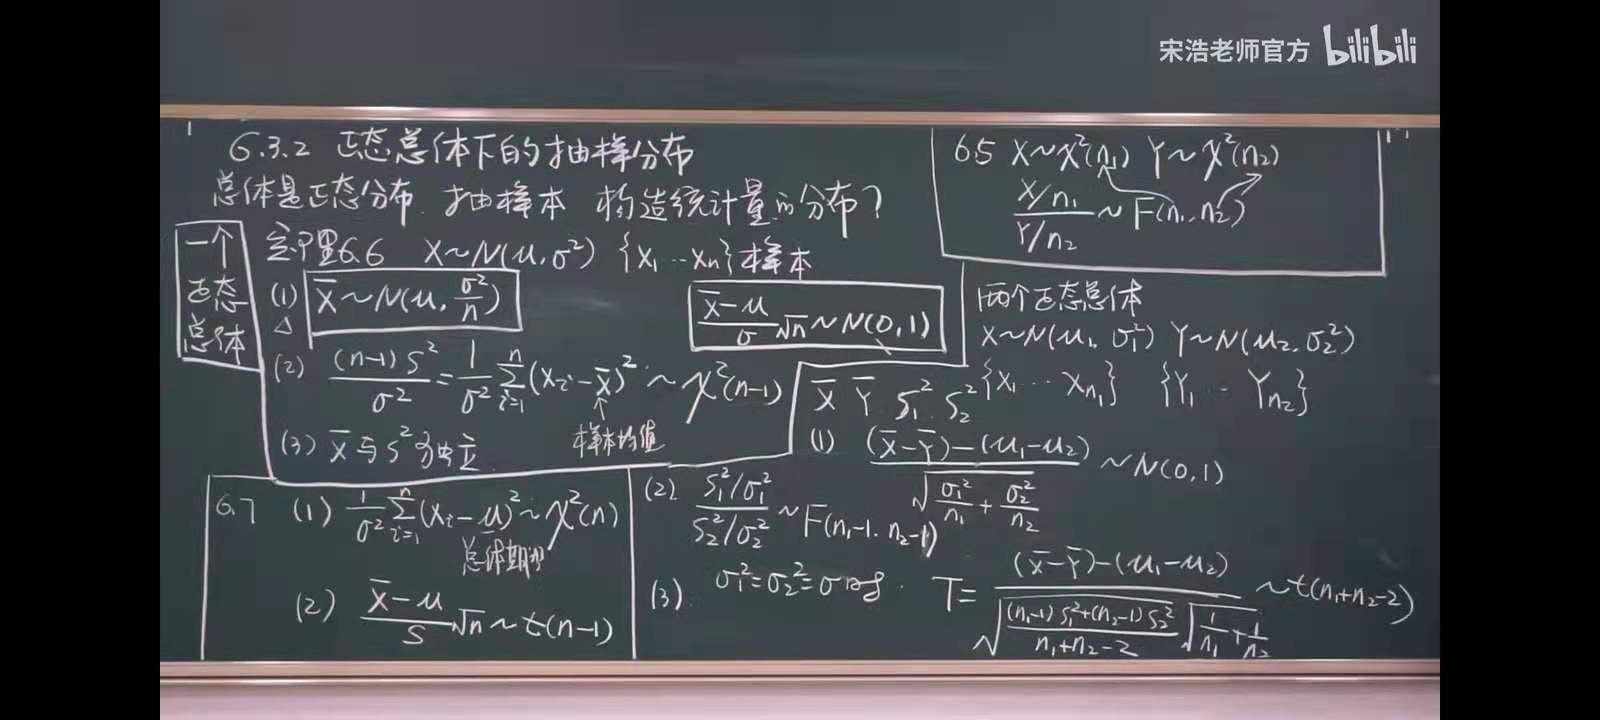 宋浩老师官方 bilibili
6.3.2 正态总体下的抽样分布
总体是正态分布. 抽样本 构造统计量的分布?
一个
正态
总体
定理6.6 X~N(μ,σ²) {X₁…Xn}样本
(1) X̄~N(μ, σ²/n) (X̄-μ)/σ √n ~N(0,1)
△
(2) (n-1)S²/σ² = 1/σ² Σᵢ₌₁ⁿ(Xᵢ-X̄)² ~ χ²(n-1)
↑
样本均值
(3) X̄与S²独立
6.7 (1) 1/σ² Σᵢ₌₁ⁿ(Xᵢ-μ)² ~ χ²(n)
总体期望
(2) (X̄-μ)/S √n ~ t(n-1)
6.5 X~χ²(n₁) Y~χ²(n₂)
(X/n₁)/(Y/n₂) ~ F(n₁,n₂)
两个正态总体
X~N(μ₁,σ₁²) Y~N(μ₂,σ₂²)
X̄ Ȳ S₁² S₂² {X₁…Xn₁} {Y₁…Yn₂}
(1) ((X̄-Ȳ)-(μ₁-μ₂))/√(σ₁²/n₁+σ₂²/n₂) ~N(0,1)
(2) (S₁²/σ₁²)/(S₂²/σ₂²) ~ F(n₁-1,n₂-1)
(3) σ₁²=σ₂²=σ 时. T= ((X̄-Ȳ)-(μ₁-μ₂))/(√(((n₁-1)S₁²+(n₂-1)S₂²)/(n₁+n₂-2)) √(1/n₁+1/n₂)) ~t(n₁+n₂-2)